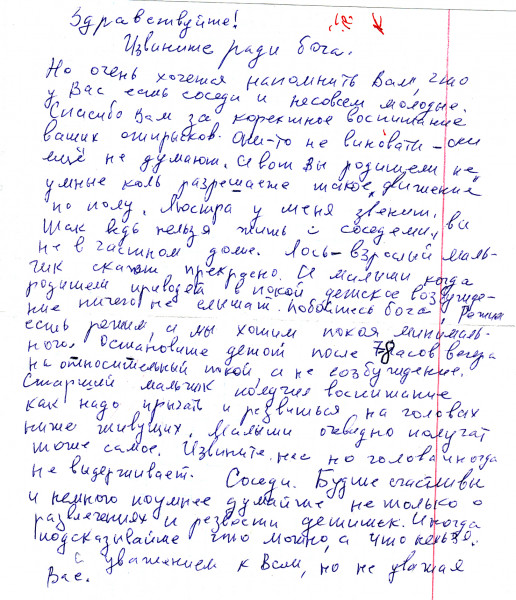 Здравствуйте!
Извините ради бога.
Но очень хочется напомнить Вам, что
у Вас есть соседи и несовсем молодые.
Спасибо Вам за коректное воспитание
ваших отпрысков. Они-то не виновати - они
ещё не думают. А вот Вы родители не
умные коль разрешаете такое "движение"
по полу. Люстра у меня звенит.
Так ведь нельзя жить с соседеми, вы
не в частном доме. Лось - взрослый маль-
чик скажем прекрасно. И малыши когда
родителей в покой детское возбужде-
ние ничего не слышат. Побойтесь бога, Режим
есть режим, и мы хотим покоя минималь-
ного. Остановите детей после 8 часов вечера
на относительный покой а не возбуждение.
Старший мальчик получил воспитание
как надо прыгать и резвиться на головах
ниже живущих. Малыши очевидно получат
тоже самое. Извините нас но голова иногда
не видерживает. Соседи. Будте счастливы
и немного поумнее думайте не только о
развлечениях и резвости детишек. Иногда
подсказывайте что можно, а что нельзя.
С уважением к Вам, но не уважая
Вас.